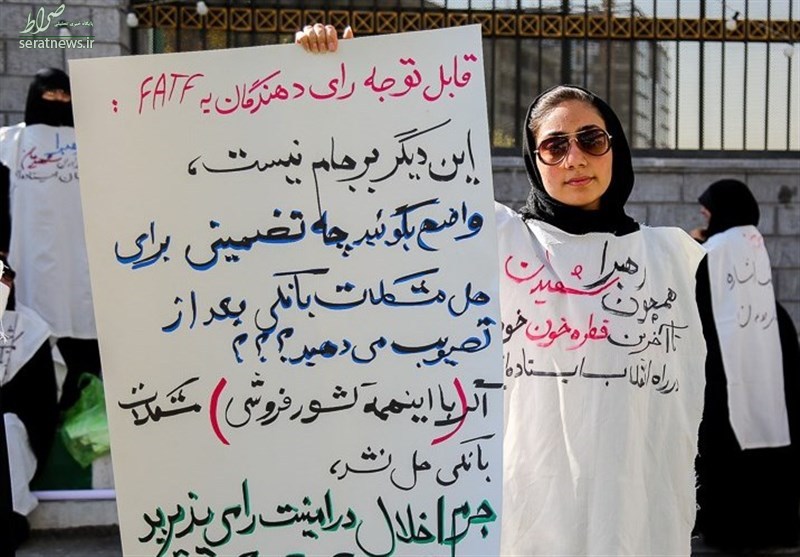 صراط
پایگاه خبری تحلیلی
seratnews.ir
قابل توجه رای دهندگان به FATF :
این دیگر برجام نیست،
واضح بگوئید چه تضمینی برای
حل مشکلات بانکی بعد از
تصویب می دهید؟؟؟
اگر با اینهمه (کشورفروشی) مشکلات
بانکی حل نشد،
جرم اخلال در امنیت را می پذیرید
رهبرا
همچون شهیدان
تا آخرین قطره خون خو
در راه انقلاب ایستاده‌ا
رهبرا